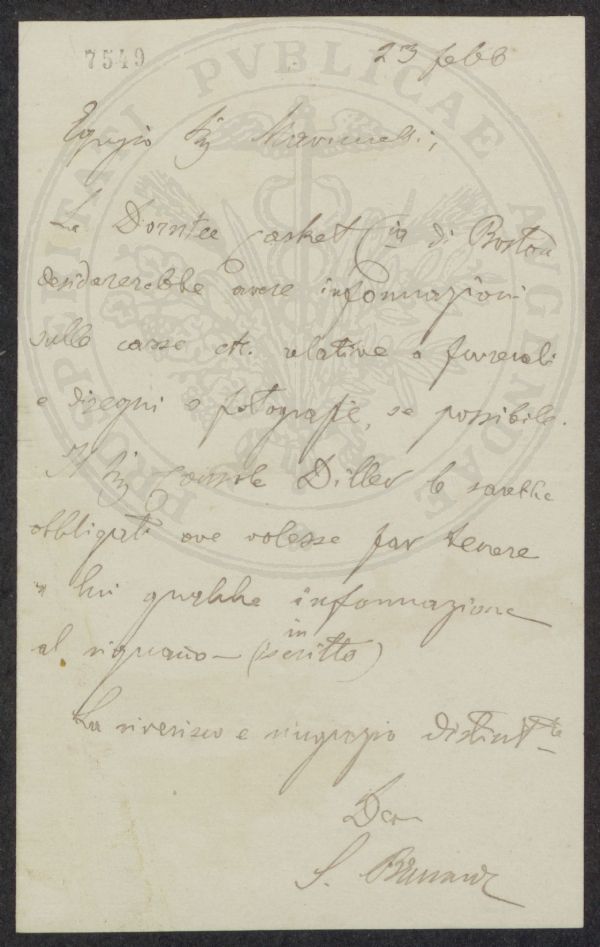 7549
23 febb
Egregio Sig
La Dornice Casket Co di Boston
desidererebbe avere informazioni
sulle casse etc. relative a funerali
e disegni o fotografie, se possibile.
Il Sig Console Diller le sarebbe
obbligato ove volesse far tenere
a lui qualche informazione
al riguardo — (in iscritto)
La riverisco e ringrazio distintte
Dev
S.
PROSPERITATI PVBLICAE AVGENDAE